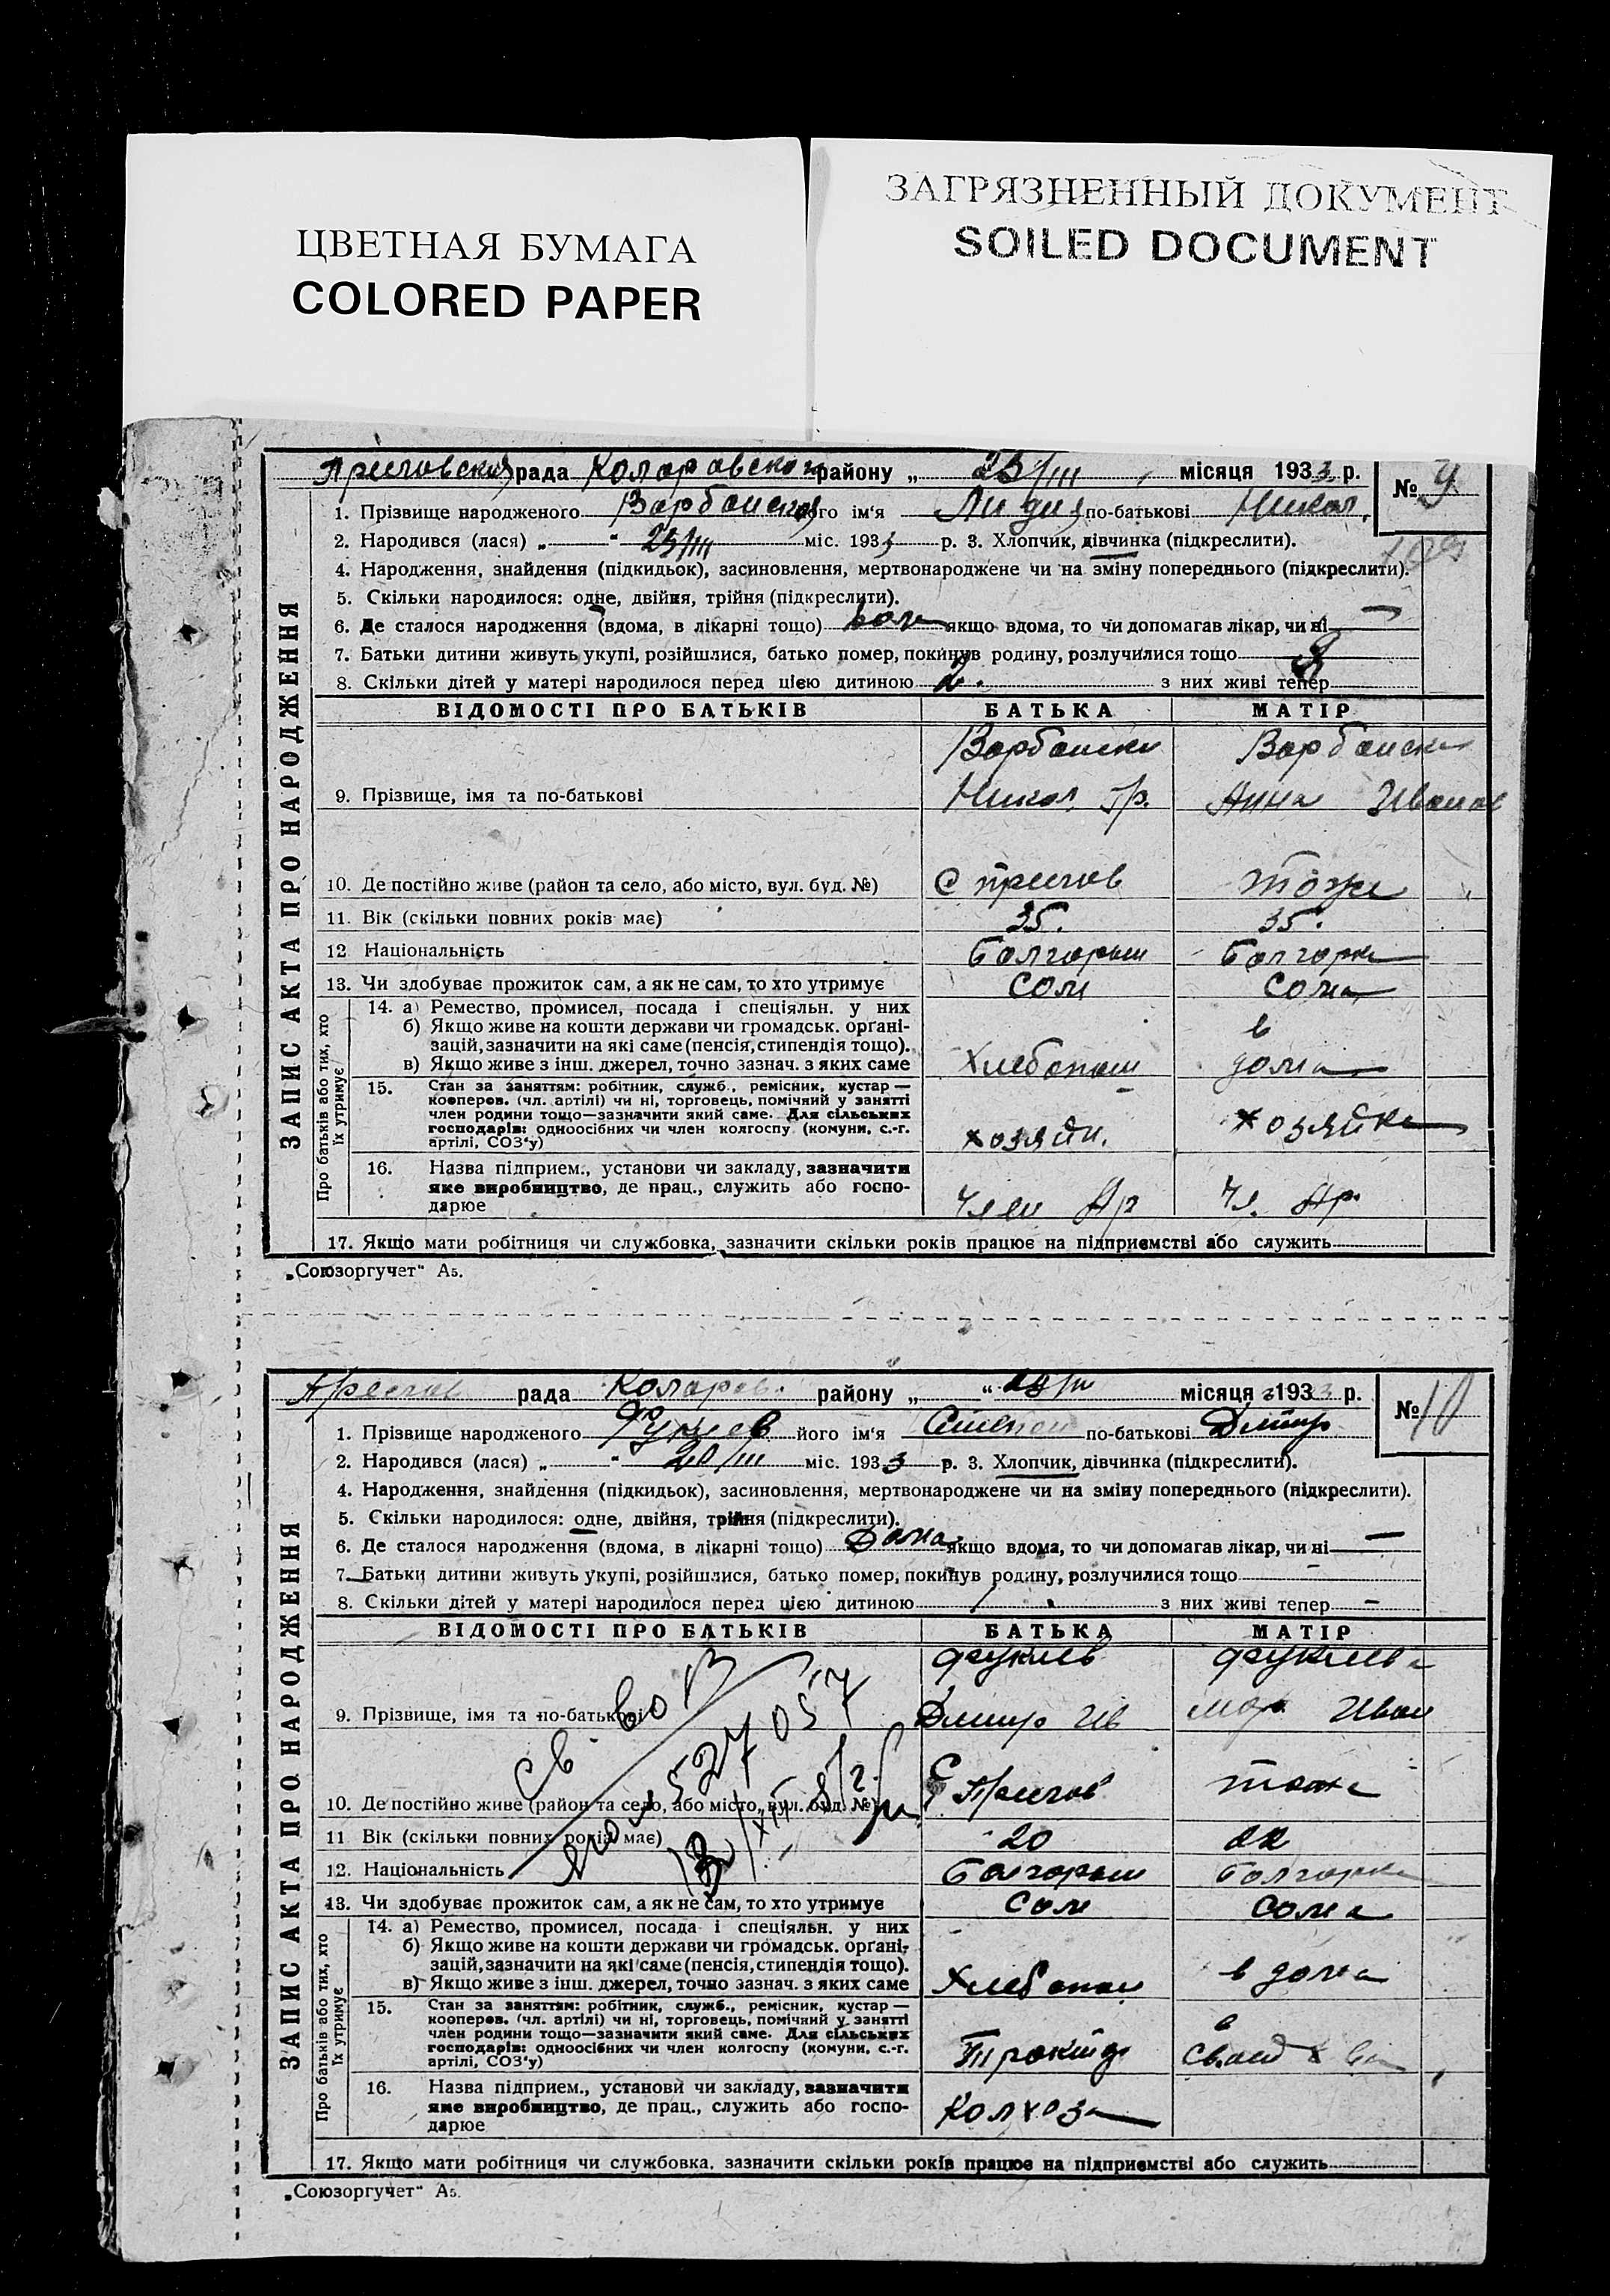 ЦВЕТНАЯ БУМАГА
COLORED PAPER
ЗАГРЯЗНЕННЫЙ ДОКУМЕНТ
SOILED DOCUMENT
рада Коларовского району „ 23/III місяця 1933 р. № 9
1. Прізвище народженого його ім'я Лидия по-батькові Никол.
2. Народився (лася) „ “ 23/III міс. 1933 р. 3. Хлопчик, дівчинка (підкреслити).
4. Народження, знайдення (підкидьок), засиновлення, мертвонароджене чи на зміну попереднього (підкреслити).
5. Скільки народилося: одне, двійня, трійня (підкреслити).
6. Де сталося народження (вдома, в лікарні тощо) якщо вдома, то чи допомагав лікар, чи ні —
7. Батьки дитини живуть укупі, розійшлися, батько помер, покинув родину, розлучилися тощо
8. Скільки дітей у матері народилося перед цією дитиною 2. з них живі тепер
ЗАПИС АКТА ПРО НАРОДЖЕННЯ
ВІДОМОСТІ ПРО БАТЬКІВ БАТЬКА МАТІР
Варбански Варбански
9. Прізвище, імя та по-батькові Никол Гр. Анна Иванов
10. Де постійно живе (район та село, або місто, вул. буд. №) С тоже
11. Вік (скільки повних років має) 35. 35.
12 Національність Болгарин Болгарка
13. Чи здобуває прожиток сам, а як не сам, то хто утримує Сам Сама
Про батьків або тих, хто їх утримує
14. а) Ремество, промисел, посада і спеціяльн. у них
б) Якщо живе на кошти держави чи громадськ. орґані-
зацій, зазначити на які саме (пенсія, стипендія тощо). в
в) Якщо живе з інш. джерел, точно зазнач. з яких саме Хлебопаш дома
15. Стан за заняттям: робітник, служб., ремісник, кустар —
кооперов. (чл. артілі) чи ні, торговець, помічний у занятті
член родини тощо—зазначити який саме. Для сільських
господарів: одноосібних чи член колгоспу (комуни, с.-г.
артілі, СОЗ'у) хозяйн. хозяйка
16. Назва підприєм., установи чи закладу, зазначити
яке виробництво, де прац., служить або госпо-
дарює Член Ар Чл. Ар.
17. Якщо мати робітниця чи службовка, зазначити скільки років працює на підприємстві або служить
„Союзоргучет“ А5.
рада Коларов. району „ “ місяця 1933 р. № 10
1. Прізвище народженого його ім'я Степан по-батькові Дмитр
2. Народився (лася) „ “ 20/III міс. 1933 р. 3. Хлопчик, дівчинка (підкреслити).
4. Народження, знайдення (підкидьок), засиновлення, мертвонароджене чи на зміну попереднього (підкреслити).
5. Скільки народилося: одне, двійня, трійня (підкреслити).
6. Де сталося народження (вдома, в лікарні тощо) Дома якщо вдома, то чи допомагав лікар, чи ні —
7. Батьки дитини живуть укупі, розійшлися, батько помер, покинув родину, розлучилися тощо
8. Скільки дітей у матері народилося перед цією дитиною з них живі тепер —
ЗАПИС АКТА ПРО НАРОДЖЕННЯ
ВІДОМОСТІ ПРО БАТЬКІВ БАТЬКА МАТІР
Фукиев Фукиева
9. Прізвище, імя та по-батькові Дмитр Ив Мар. Иван
527057
10. Де постійно живе (район та село, або місто, вул. буд. №) С тоже
11 Вік (скільки повних років має) 20 22
12. Національність Болгарин Болгарка
13. Чи здобуває прожиток сам, а як не сам, то хто утримує Сам Сама
Про батьків або тих, хто їх утримує
14. а) Ремество, промисел, посада і спеціяльн. у них
б) Якщо живе на кошти держави чи громадськ. орґані-
зацій, зазначити на які саме (пенсія, стипендія тощо).
в) Якщо живе з інш. джерел, точно зазнач. з яких саме Хлебопаш в дома
15. Стан за заняттям: робітник, служб., ремісник, кустар —
кооперов. (чл. артілі) чи ні, торговець, помічний у занятті
член родини тощо—зазначити який саме. Для сільських
господарів: одноосібних чи член колгоспу (комуни, с.-г.
артілі, СОЗ'у)
16. Назва підприєм., установи чи закладу, зазначити
яке виробництво, де прац., служить або госпо-
дарює Колхоза
17. Якщо мати робітниця чи службовка, зазначити скільки років працює на підприємстві або служить
„Союзоргучет“ А5.